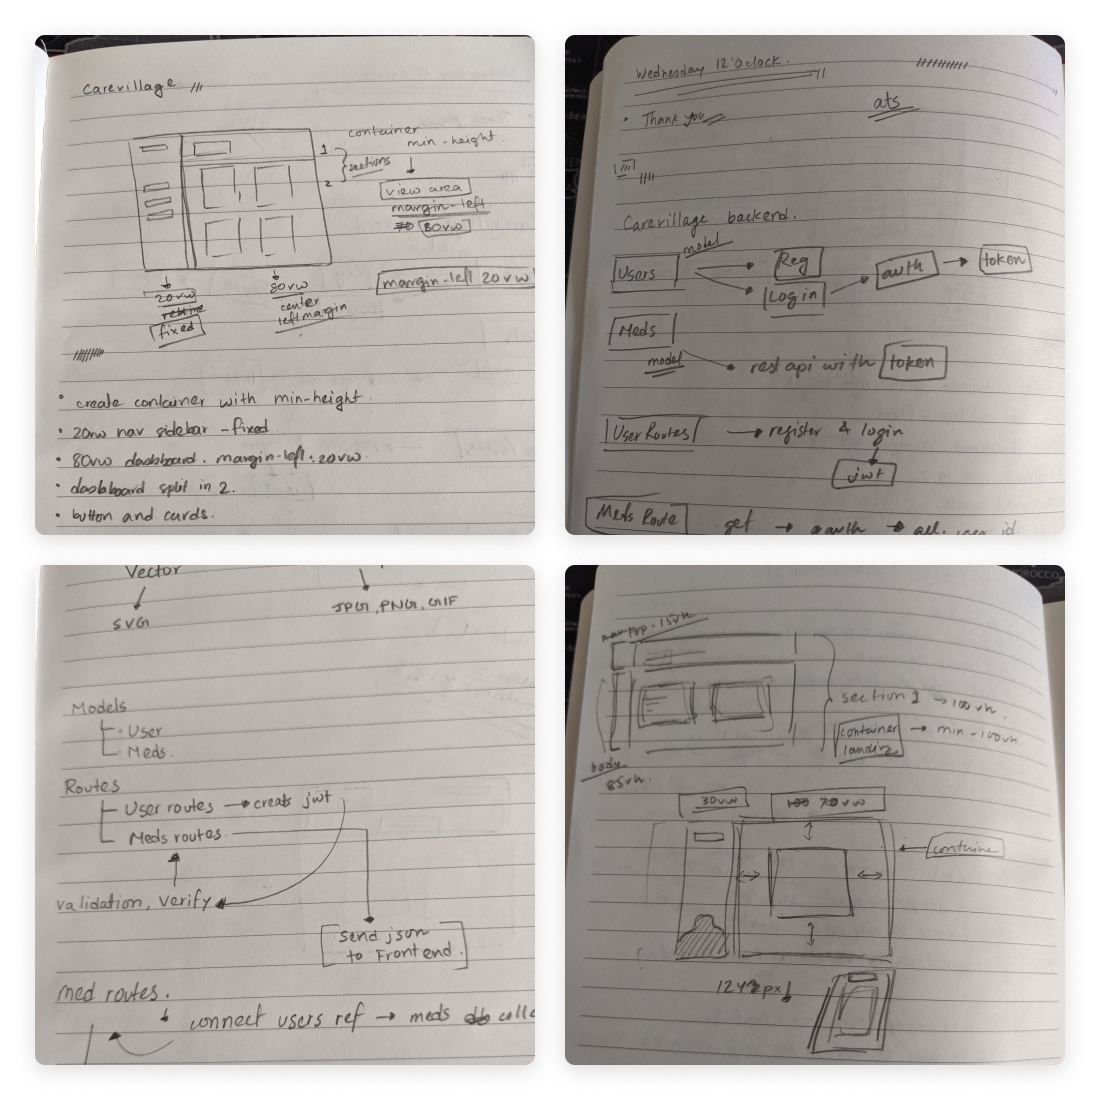 Carevillage
container
min-height
1
sections
2
view area
margin-left
80vw
margin-left 20vw
20vw
fixed
80vw
center
left margin
• create container with min-height
• 20vw nav sidebar - fixed
• 80vw dashboard. margin-left: 20vw.
• dashboard split in 2.
• button and cards.
Wednesday 12'O clock.
• Thank you
ats
Carevillage backend.
Users
model
Reg
Login
auth
token
Meds
model
rest api with token
User Routes → register & login
jwt
Meds Route
get → auth →
Vector
SVG
JPG, PNG, GIF
Models
User
Meds
Routes
User routes → create jwt
Meds routes
validation, verify
send json
to Frontend.
med routes.
connect users ref → meds
15vh
section 1 → 100vh.
container
landing
→ min-100vh
body
85vh.
30vw
70vw
container
1242px